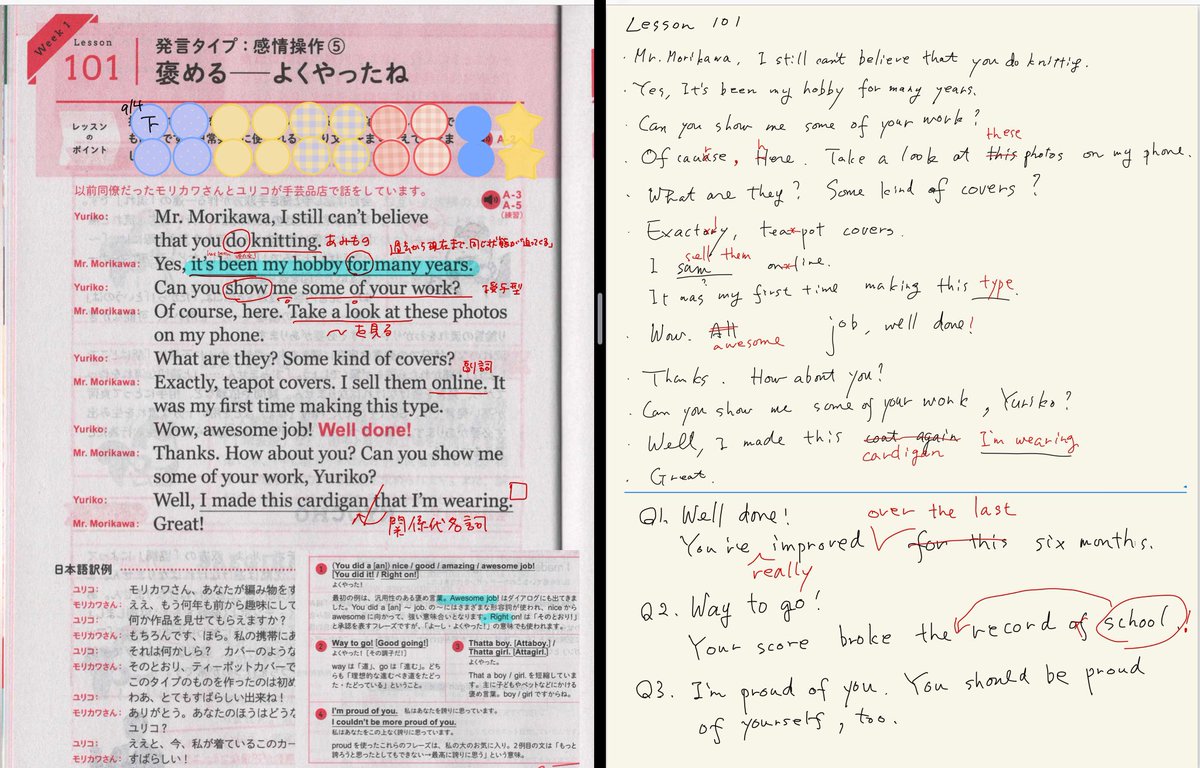 Week 1
Lesson
101
発言タイプ：感情操作⑤
褒める――よくやったね
9/4
下
レッスン
の
ポイント
以前同僚だったモリカワさんとユリコが手芸品店で話をしています。
A-3
A-5
(練習)
Yuriko: Mr. Morikawa, I still can't believe
that you do knitting. あみもの
Mr. Morikawa: Yes, it's been my hobby for many years.
Yuriko: Can you show me some of your work?
Mr. Morikawa: Of course, here. Take a look at these photos
on my phone. ～を見る
Yuriko: What are they? Some kind of covers?
副詞
Mr. Morikawa: Exactly, teapot covers. I sell them online. It
was my first time making this type.
Yuriko: Wow, awesome job! Well done!
Mr. Morikawa: Thanks. How about you? Can you show me
some of your work, Yuriko?
Yuriko: Well, I made this cardigan that I'm wearing.
Mr. Morikawa: Great! 関係代名詞
日本語訳例
ユリコ： モリカワさん、あなたが編み物をす
モリカワさん： ええ、もう何年も前から趣味にして
ユリコ： 何か作品を見せてもらえますか？
モリカワさん： もちろんです、ほら。私の携帯にあ
ユリコ： それは何かしら？ カバーのような
モリカワさん： そのとおり、ティーポットカバーで
このタイプのものを作ったのは初め
ユリコ： わあ、とてもすばらしい出来ね！
モリカワさん： ありがとう。あなたのほうはどうな
ユリコ？
ユリコ： ええと、今、私が着ているこのカー
モリカワさん： すばらしい！
1 (You did a [an]) nice / good / amazing / awesome job!
(You did it! / Right on!)
よくやった！
最初の例は、汎用性のある褒め言葉。Awesome job! はダイアログにも出てきま
した。You did a [an] ～ job. の～にはさまざまな形容詞が使われ、nice から
awesome に向かって、強い意味合いとなります。Right on! は「そのとおり！」
と承認を表すフレーズですが、「よーし・よくやった！」の意味でも使われます。
2 Way to go! [Good going!]
よくやった！［その調子だ！］
way は「道」、go は「進む」。どち
らも「理想的な進むべき道をたどっ
た・たどっている」ということ。
3 Thatta boy. [Attaboy.] /
Thatta girl. [Attagirl.]
よくやった。
That a boy / girl を短縮していま
す。主に子どもやペットなどにかける
褒め言葉。boy / girl ですからね。
4 I'm proud of you. 私はあなたを誇りに思っています。
I couldn't be more proud of you.
私はあなたをこの上なく誇りに思います。
proud を使ったこれらのフレーズは、私の大のお気に入り。2例目の文は「もっと
誇ろうと思ったとしてもできない→最高に誇りに思う」という意味。
Lesson 101
・Mr. Morikawa, I still can't believe that you do knitting.
・Yes, It's been my hobby for many years.
・Can you show me some of your work?
these
・Of course, Here. Take a look at this photos on my phone.
・What are they? Some kind of covers?
・Exactly, teapot covers.
sell them
I sam online.
It was my first time making this type.
・Wow. All job, well done!
awesome
・Thanks. How about you?
・Can you show me some of your work, Yuriko?
・Well, I made this coat again I'm wearing
cardigan
・Great.
Q1. Well done! over the last
You're improved for this six months.
really
Q2. Way to go!
Your score broke the record of school!
Q3. I'm proud of you. You should be proud
of yourself, too.